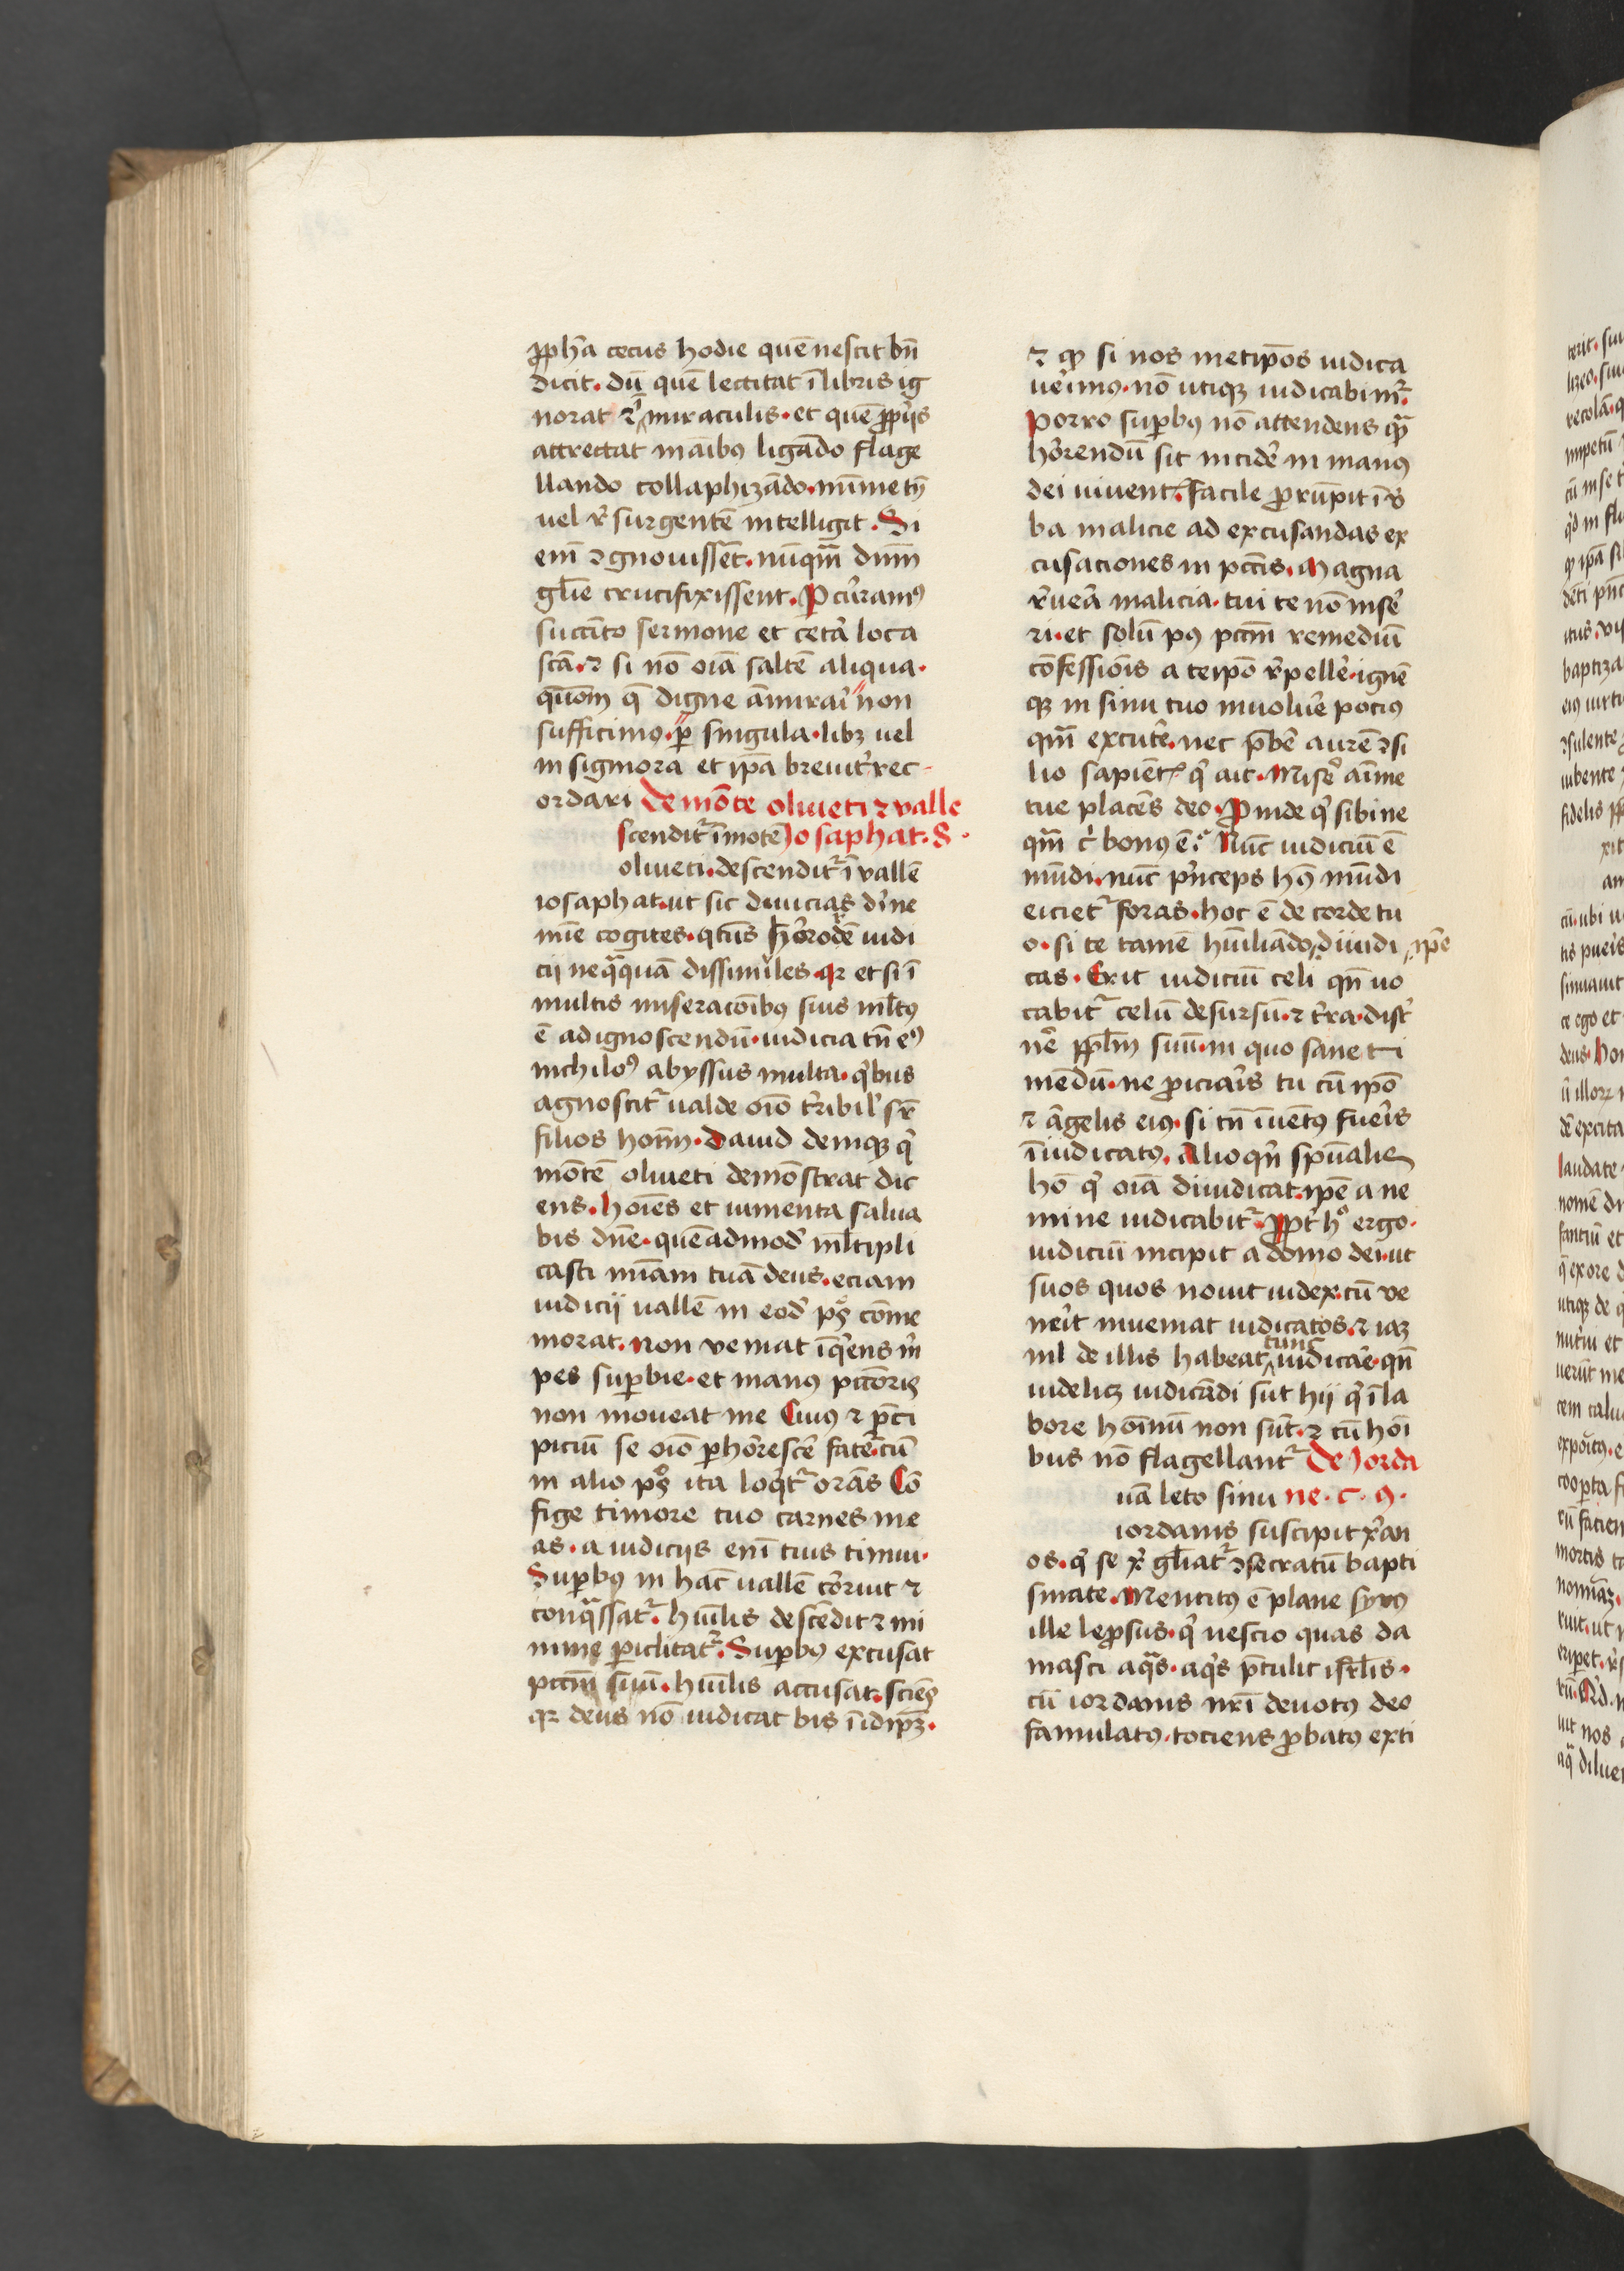 ꝓph̄a cecus hodie quē nescit bn̄
dicit. dū quē lectitat ī libris ig
norat ⁊ ī miraculis. et quē ꝓp̄ijs
attrectat mānibꝯ ligādo flage
llando collaphizādo. mīme tn̄
uel r̄surgentē intelligit. Si
enī ꝯgnouissēt. nūqᷓm dn̄m
gl̄ie crucifixissent. Pcurramꝯ
succīto sermone et cetā loca
scā. ⁊ si nō oīa saltē aliqua.
quō̄m q̄ digne āmirari non
sufficimꝯ. ꝑ singula. libꝫ uel
insigniora et ip̄a breuit̄ rec-
ordari De mōte oliueti ⁊ valle
scendit̄ ī mōtē Josaphat. 8.
oliueti. descendit̄ ī vallē
iosaphat. ut sic diuicias diūe
mīe cogites. qtn̄s horrorē iudi
cij neqᷓquā dissimules. qꝛ et si ī
multis miseracōibꝯ suis ml̄tꝯ
ē ad ignoscendū. iudicia tn̄ eꝯ
nichilōꝯ abyssus multa. qͥbus
agnoscit̄ ualde oīo t̄ribil̄ sr̄
filios hom̄. dauid deniqꝫ qͥ
mōtē oliueti demōstrat dic
ens. hoīes et iumenta salua
bis dn̄e. quēadmod̄ ml̄tipli
casti mīam tuā deus. eciam
iudicij uallē in eod̄ pͦs cōme
morat. non veniat īqͥens m̄
pes suꝑbie. et manꝯ pccōris
non moueat me Cuiꝯ ⁊ p̄ci
piciū se oīo ꝑhorrescē fatet̄ cū
in alio pͦs ita loqͥt̄ orās Cō
fige timore tuo carnes me
as. a iudicijs enī tuis timui.
Suꝑbꝯ in hāc uallē corruit ⁊
conqᷓssat̄. huīlis descēdit ⁊ mi
nime ꝑiclitat̄. Suꝑbꝯ excusat
pccm̄ suū. huīlis accusat. sciēs
qꝛ deus nō iudicat bis ī idip̄ꝫ.
⁊ qꝫ si nos metip̄os iudica
uerimꝯ. nō utiqꝫ iudicabimr̄.
Porro suꝑbꝯ nō attendens qᷓ
horrendū sit incidē in manꝯ
dei uiuent̄. facile ꝓrūpit ī v̄
ba malicie ad excusandas ex
cusaciones in pcc̄is. Magna
r̄uera malicia. tui te nō mise
ri. et solū pꝯ pccm̄ remediū
cōfessiōis a teip̄o r̄pellē. ignē
qꝫ in sinu tuo inuoluē pociꝯ
qᷓm excutē. nec p̄bē aurē ꝯsi
lio sapient̄ qͥ ait. Miserē aīme
tue placēs deo. Proinde qͥ sibi ne
qᷓm cͥ bonꝯ ē. Nūc iudiciū ē
mūdi. nūc pͥnceps hꝯ mūdi
eiciet̄ foras. hoc ē de corde tu
o. si te tamē huīliādo diiudi ip̄e
cas. Erit iudiciū celi qn̄ uo
cabit̄ celū desursū. ⁊ t̄ra. disc̄
nē pp̄lm suū. in quo sane ti
mēdū. ne ꝓiciaris tu cū ip̄o
⁊ āgelis eiꝯ. si tn̄ īuētꝯ fueris
ī iudicatꝯ. Alioqͥn sp̄ualis
hō qͥ oīa diiudicat. ip̄e a ne
mine iudicabit̄. Propt̄ hͦ ergo.
iudiciū incipit a domo dei. ut
suos quos nouit iudex. cū ve
nerit inueniat iudicatos. ⁊ iaꝫ
nil de illis habeat tunc iudicare. qn̄
uidelicꝫ iudicādi sūt hij qͥ ī la
bore hoīmū non sūt. ⁊ cū hoī
bus nō flagellant̄ De Jorda
uā leto sinu ne. c. 9.
iordanis suscipit xͥan
os. qͥ se xͥ gl̄iat̄ ꝯsecratū bapti
smate. Mentitꝯ ē plane syrꝯ
ille leꝓsus. qͥ nescio quas da
masci aqᷓs. aqͥs p̄tulit isr̄lis.
cū iordanis nr̄i deuotꝯ deo
famulatꝯ. tociens ꝓbatꝯ exti